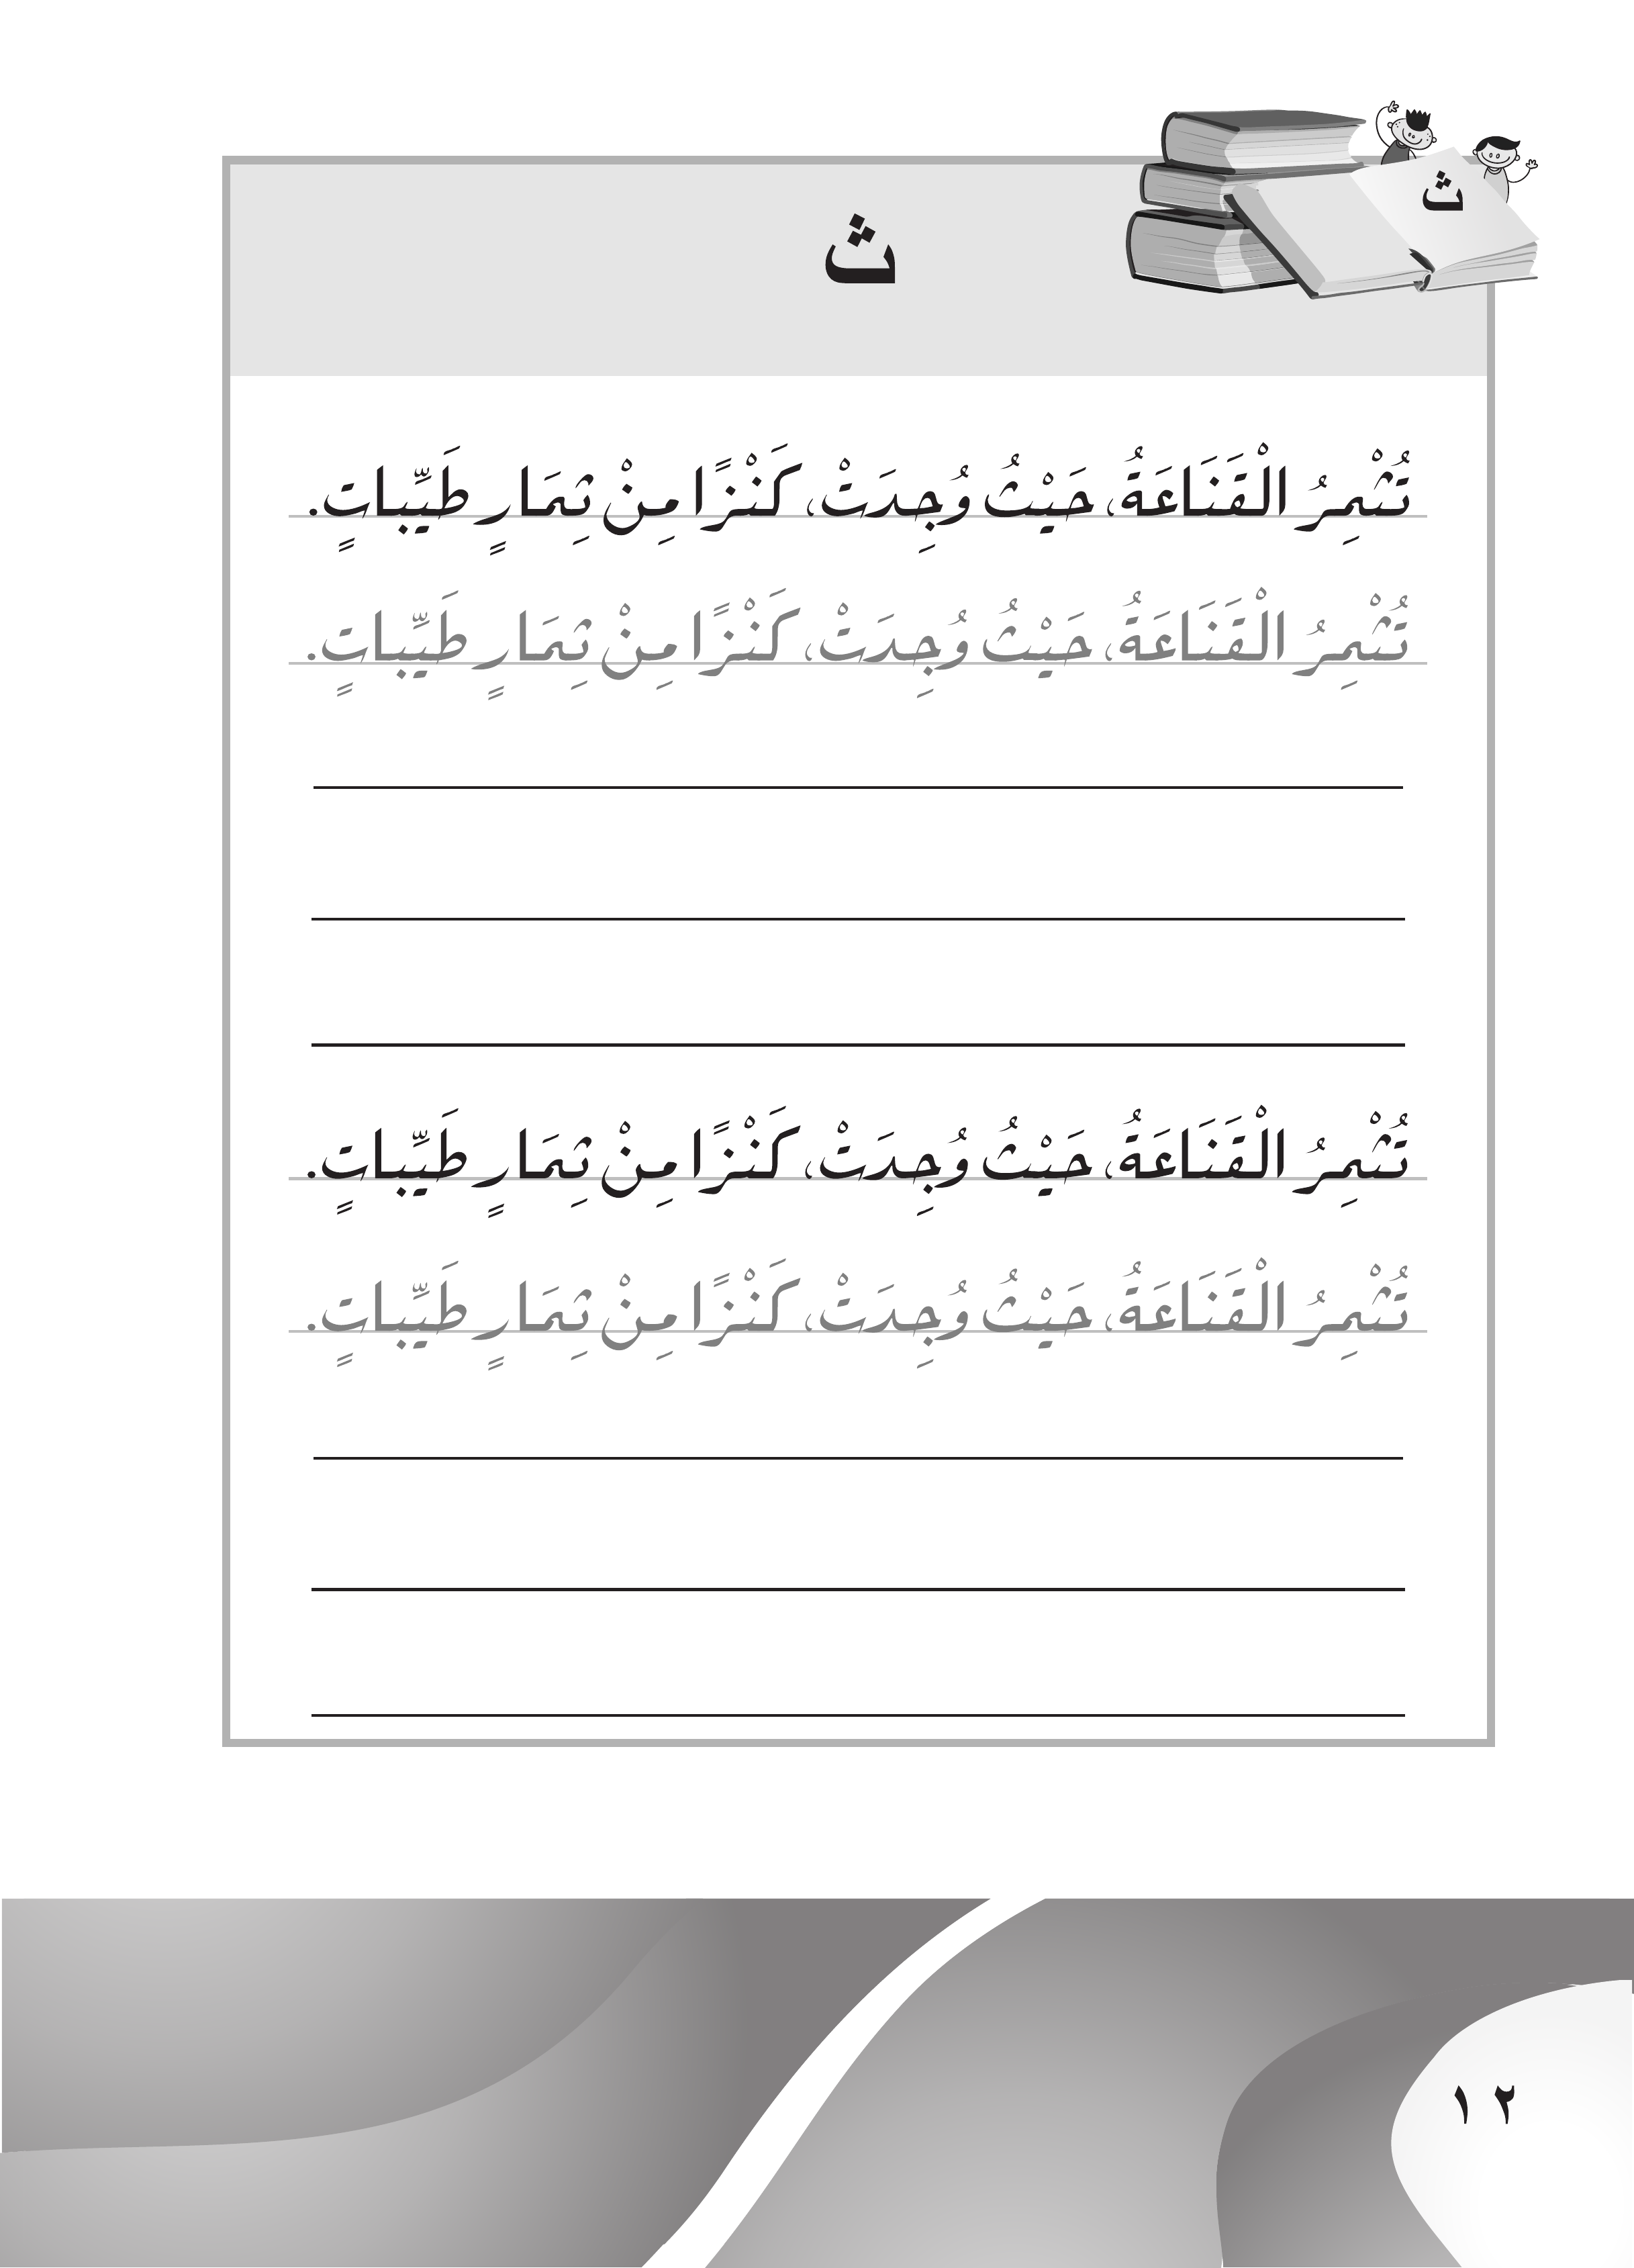 ث
ث
تُثْمِرُ الْقَنَاعَةُ، حَيْثُ وُجِدَتْ، كَنْزًا مِنْ ثِمَارٍ طَيِّبَاتٍ.
تُثْمِرُ الْقَنَاعَةُ، حَيْثُ وُجِدَتْ، كَنْزًا مِنْ ثِمَارٍ طَيِّبَاتٍ.
تُثْمِرُ الْقَنَاعَةُ، حَيْثُ وُجِدَتْ، كَنْزًا مِنْ ثِمَارٍ طَيِّبَاتٍ.
تُثْمِرُ الْقَنَاعَةُ، حَيْثُ وُجِدَتْ، كَنْزًا مِنْ ثِمَارٍ طَيِّبَاتٍ.
١٢